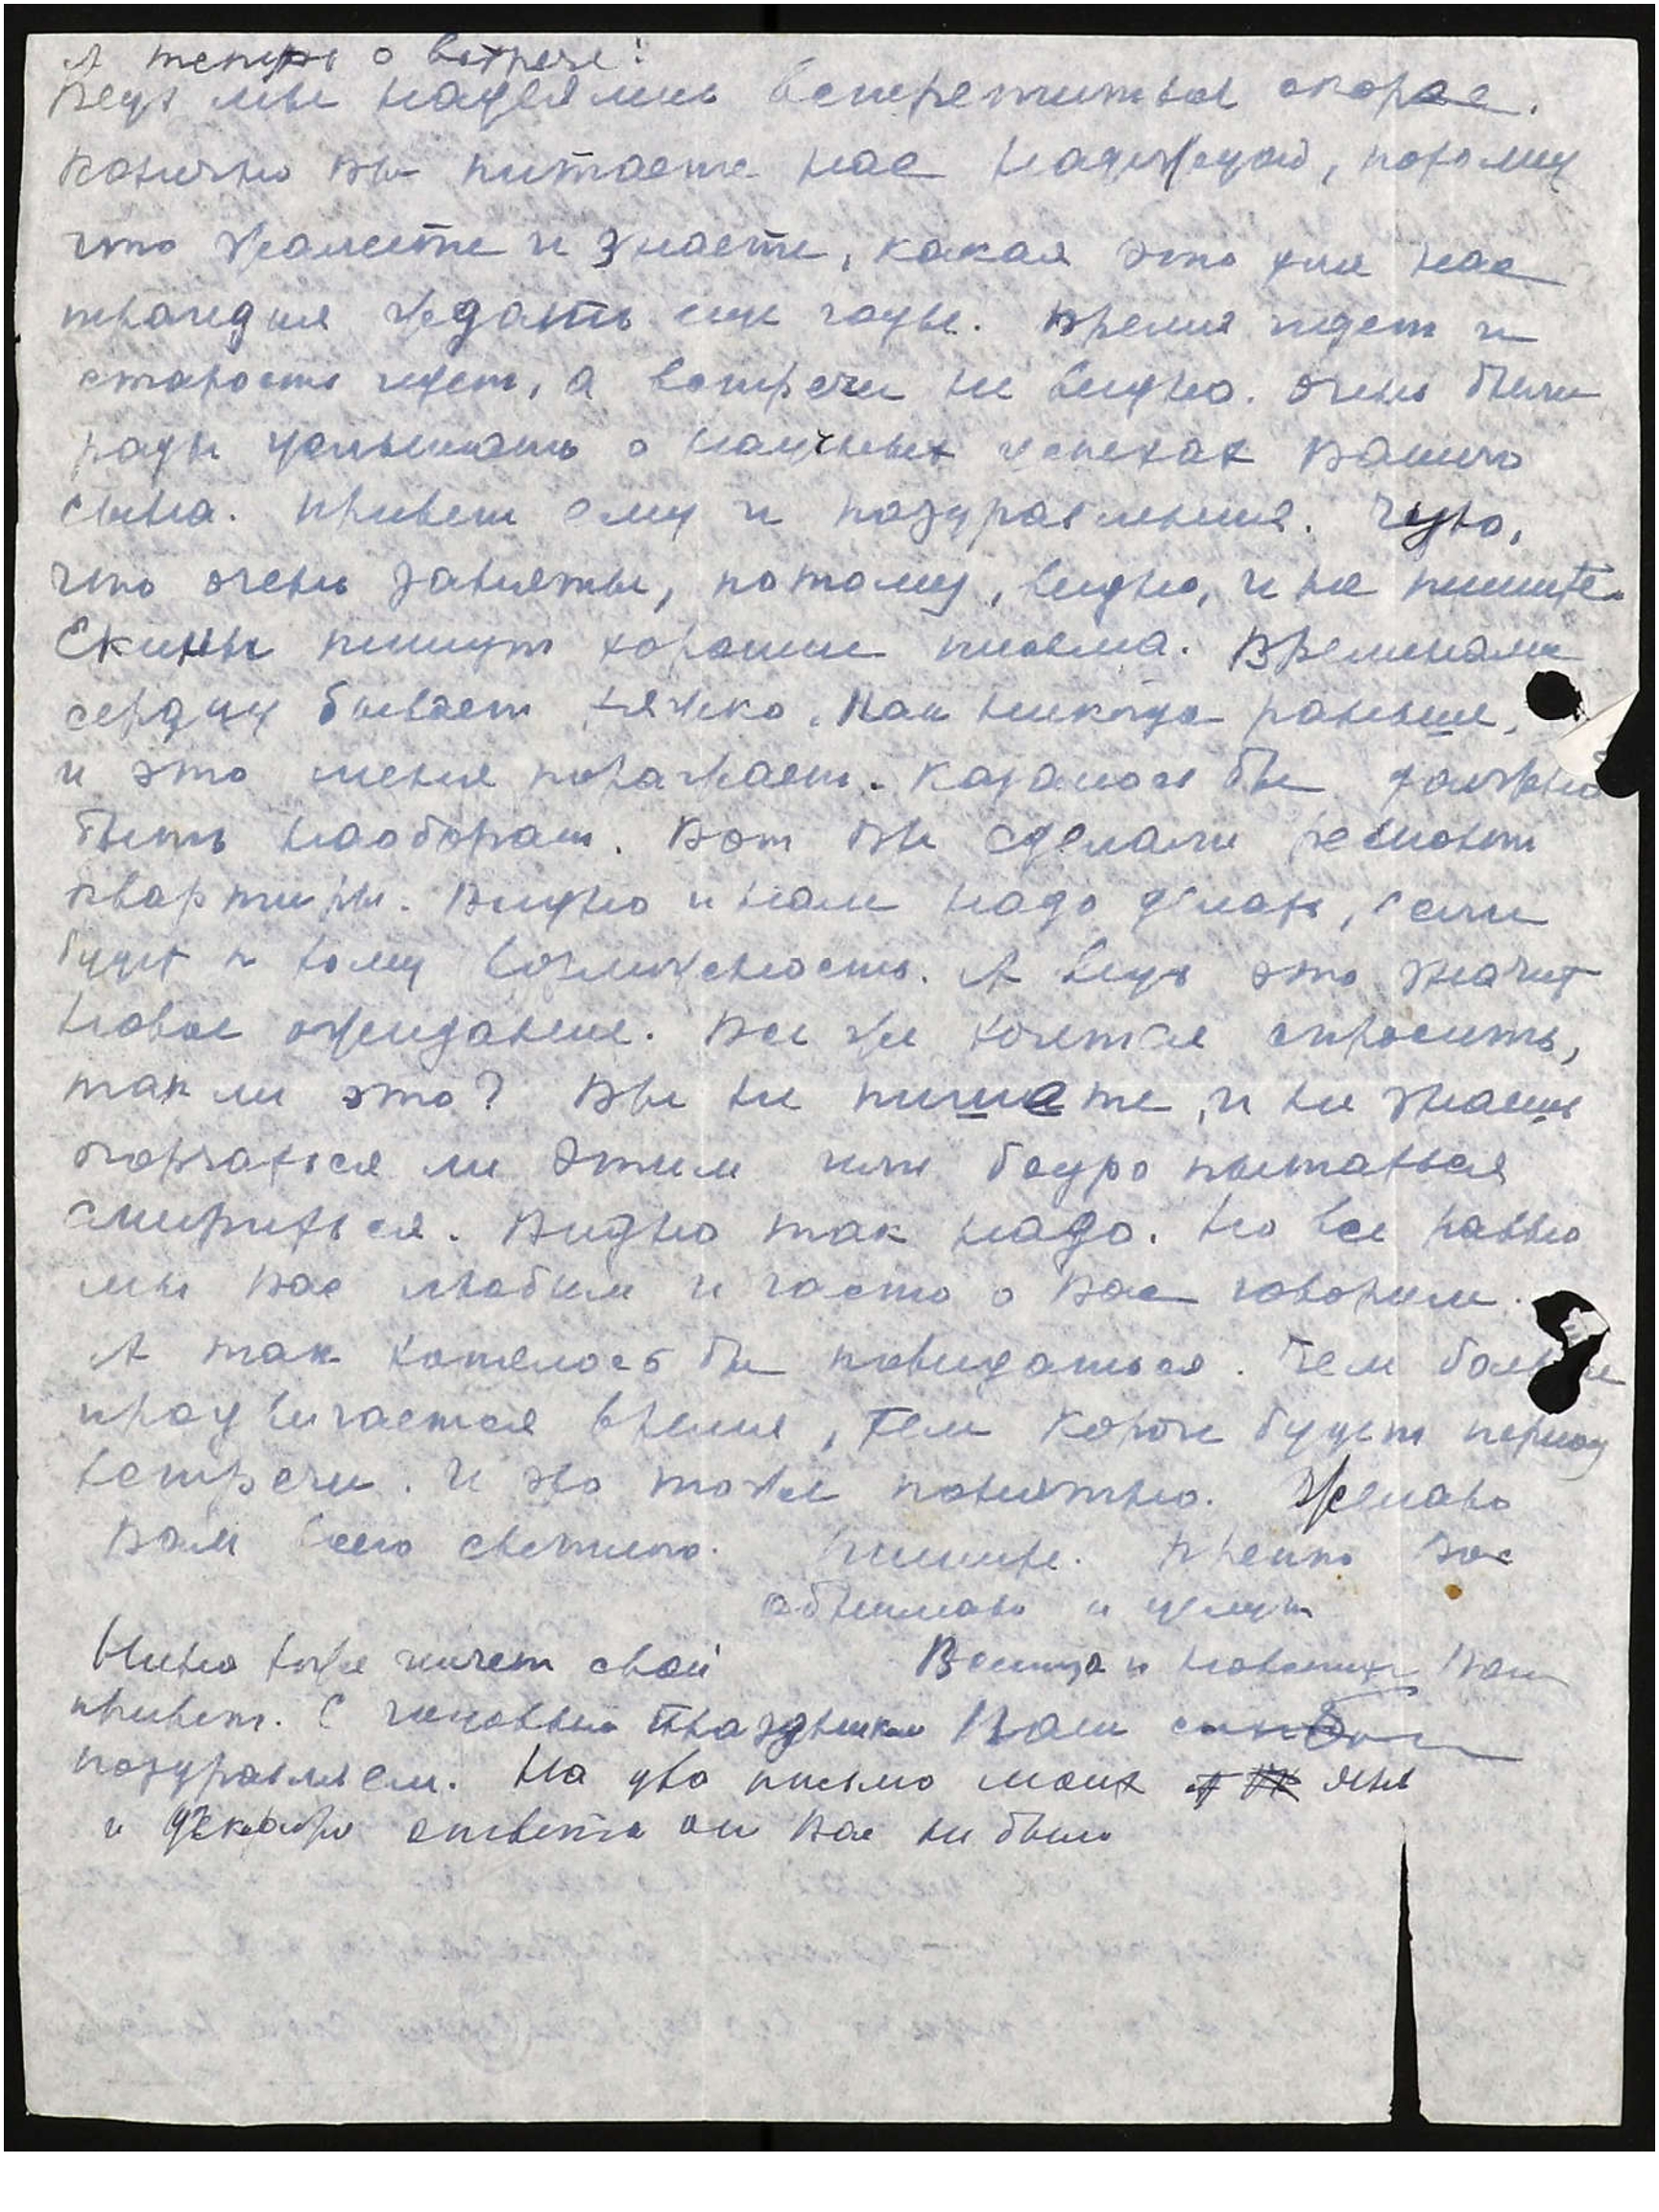 А теперь о встрече:
Ведь мы надеялись встретиться скорее.
Конечно Вы питаете нас надеждой, потому
что жалеете и знаете, какая это для нас
трагедия ждать еще годы. Время идет и
старость идет, а встречи не видно. Очень были
рады услышать о научных успехах Вашего
сына. Привет ему и поздравления. Чую,
что очень заняты, потому, видно, и не пишите.
Екины пишут хорошие письма. Временами
сердцу бывает тяжко, как никогда раньше,
и это меня поражает. Казалось бы должно
быть наоборот. Вот Вы сделали ремонт
квартиры. Видно и нам надо делать, если
будет к тому возможность. А ведь это значит
новое ожидание. Все же хочется спросить,
так ли это? Вы не пишете, и не знаешь
огорчаться ли этим или бодро пытаться
смириться. Видно так надо. Но все равно
мы Вас любим и часто о Вас говорим.
А так хотелось бы повидаться. Чем больше
продвигается время, тем короче будет период
встречи. И это тоже понятно. Желаю
Вам всего светлого. Пишите. Крепко Вас
обнимаю и целую
Нина тоже шлет свой
привет. С праздником Вам
поздравляем. На два письма моих янв
и декабря ответа от Вас не было